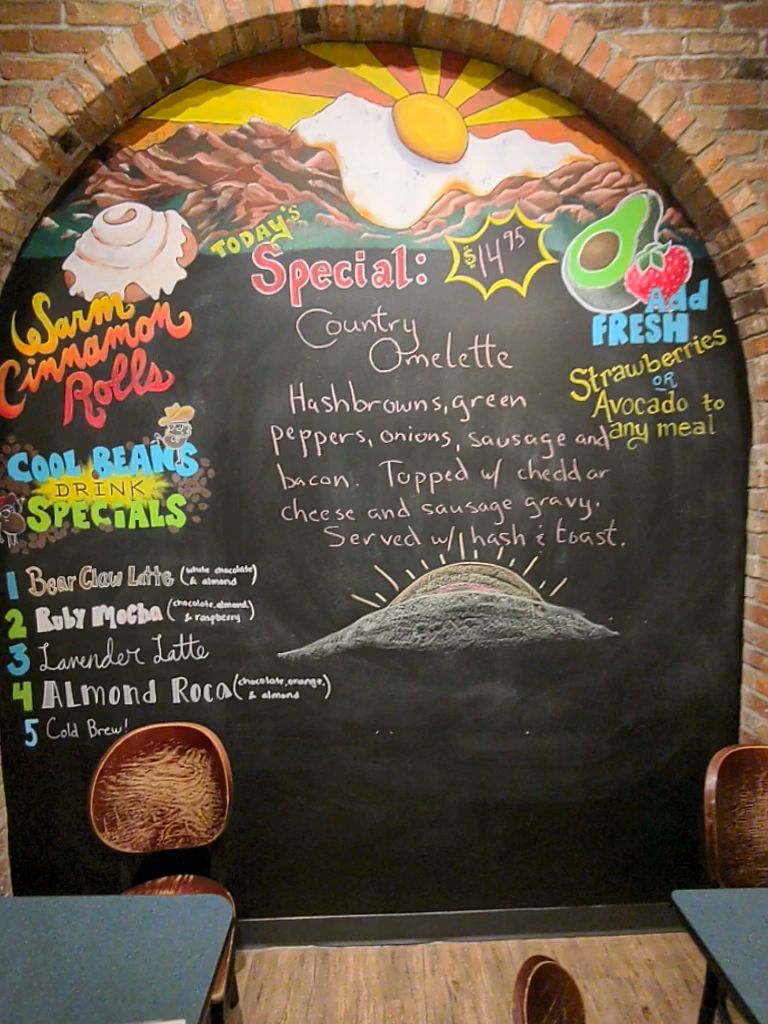 TODAY'S
Special:
$14.95
Country
Omelette
Hashbrowns, green
peppers, onions, sausage and
bacon. Topped w/ cheddar
cheese and sausage gravy.
Served w/ hash & toast.
Warm
Cinnamon
Rolls
COOL BEANS
DRINK
SPECIALS
1 Bear Claw Latte (white chocolate
& almond)
2 Ruby Mocha (chocolate, almond,
& raspberry)
3 Lavender Latte
4 ALmond Roca (chocolate, orange,
& almond)
5 Cold Brew!
Add
FRESH
Strawberries
OR
Avocado to
any meal